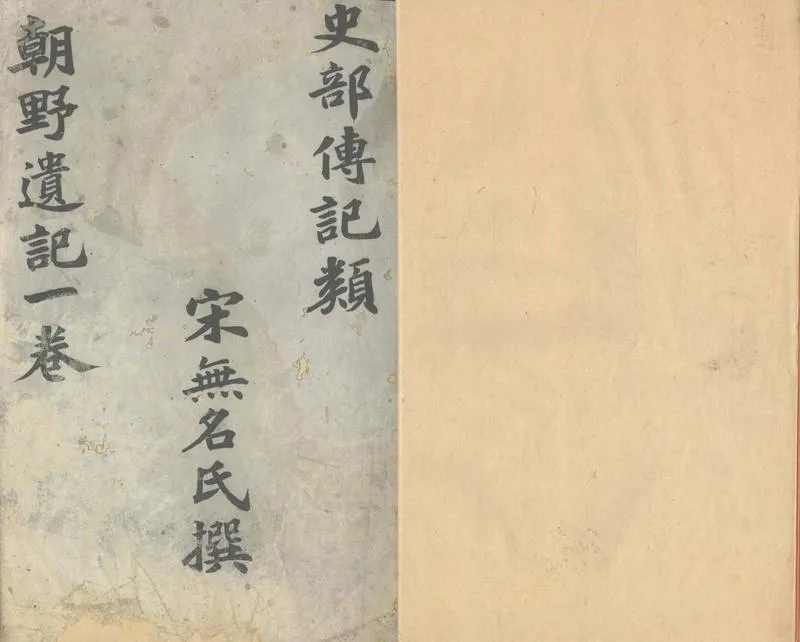 史部傳記類
宋無名氏撰
朝野遺記一卷